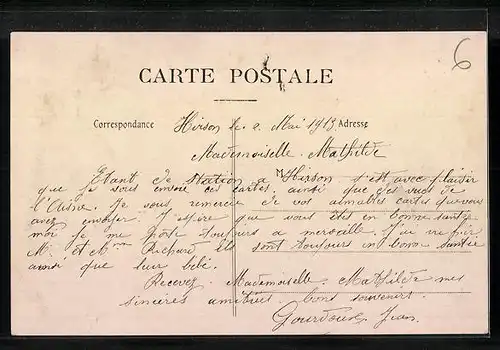 6
CARTE POSTALE
Correspondance
Adresse
Hirson le 2 Mai 1913
Mademoiselle Mathilde
Etant de station a Hirson s'est avec plaisir
que je vous envoie ces cartes, ainsi que des vues de
l'Aisne. Je vous remercie de vos aimables cartes que vous
avez envoyer. J'espere que vous êtes en bonne santé
moi je me porte toujours a merveille. J'ai vu hier
M. et Mme Richard Ils sont toujours en bonne santée
ainsi que leur bébé.
Recevez Mademoiselle Mathilde mes
sincères amitiés bons souvenirs.
Gourdoux Jean